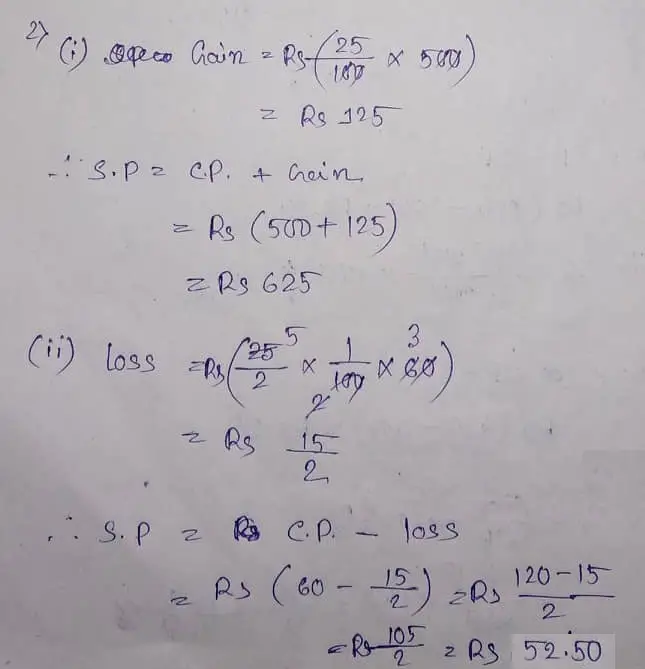 2) (i) Gain = Rs (25/100 × 500)
= Rs 125
∴ S.P = C.P. + Gain
= Rs (500 + 125)
= Rs 625
(ii) loss = Rs (25/2 × 1/100 × 60) 5 2 3
= Rs 15/2
∴ S.P = Rs C.P. - loss
= Rs (60 - 15/2) = Rs 120-15/2
= Rs 105/2 = Rs 52.50